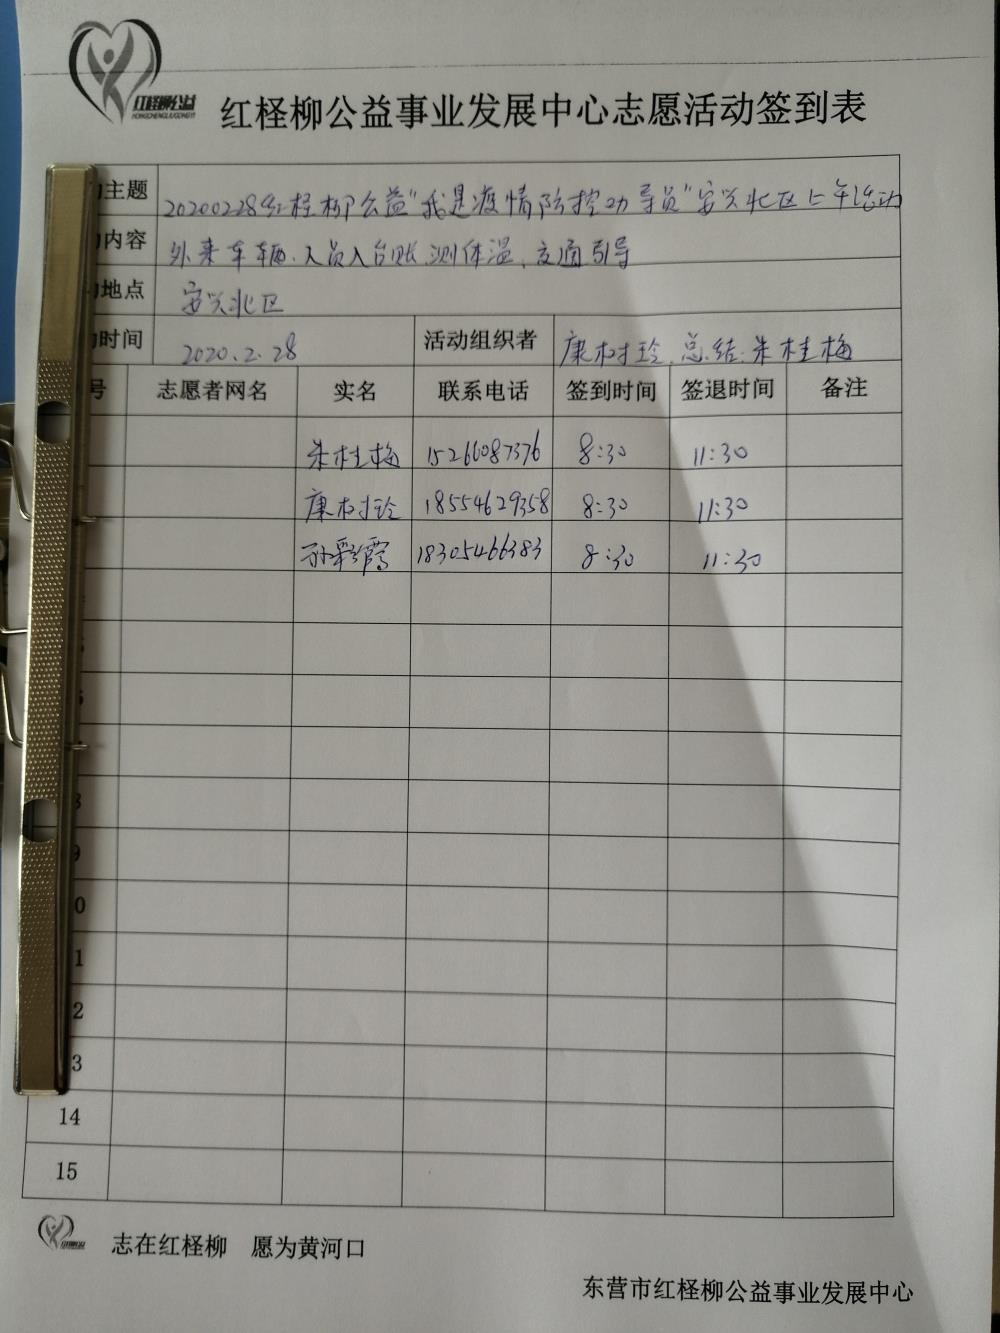 红柽柳公益
HONGCHENGLIUGONGYI
红柽柳公益事业发展中心志愿活动签到表
主题 20200228红柽柳公益“我是疫情防控劝导员”安兴北区上午活动
内容 外来车辆、人员入台账、测体温、交通引导
地点 安兴北区
时间 2020.2.28 活动组织者 康树玲 总结:朱桂梅
号 志愿者网名 实名 联系电话 签到时间 签退时间 备注
朱桂梅 15266087376 8:30 11:30
康树玲 18554629358 8:30 11:30
孙彩霞 18305466383 8:30 11:30
9
0
1
2
3
14
15
志在红柽柳 愿为黄河口
东营市红柽柳公益事业发展中心